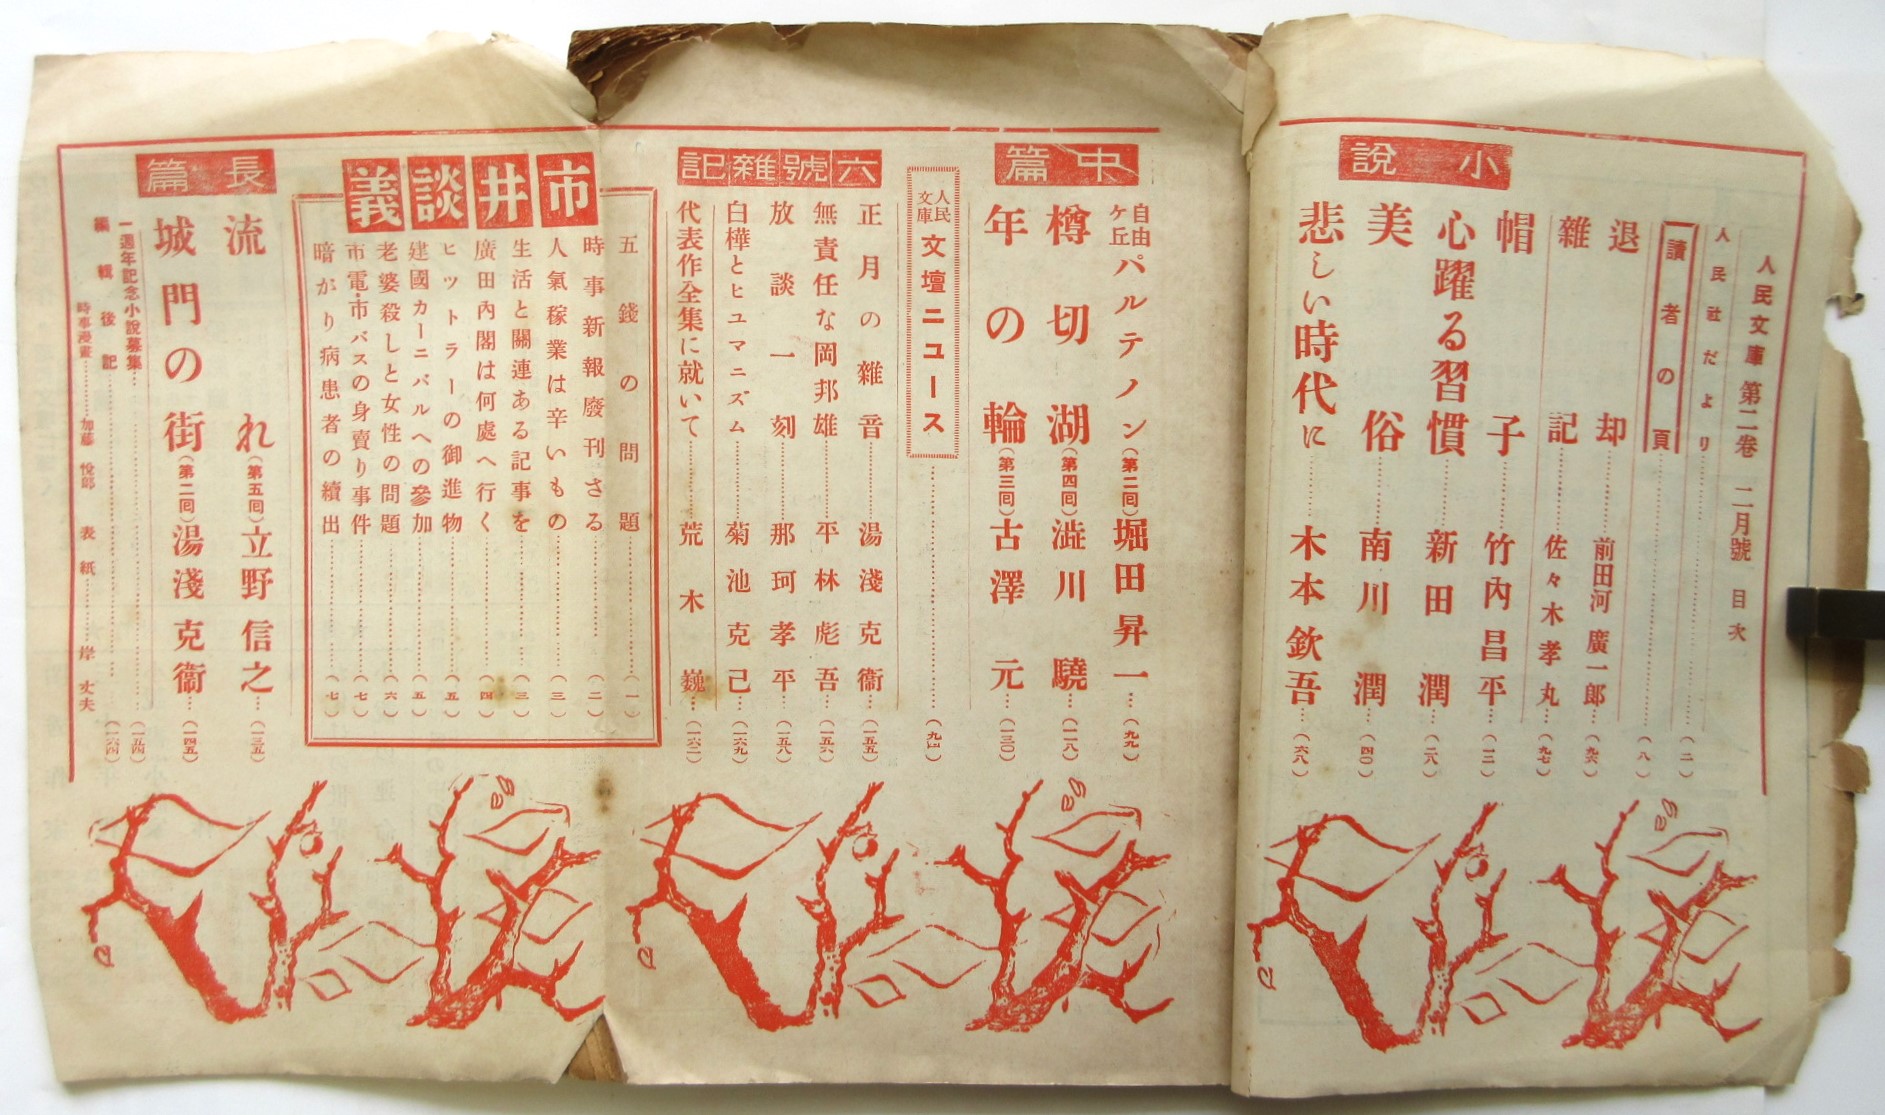 人民文庫 第二卷 二月號 目次
人民社だより……(二)
讀者の頁……(八)
退却……前田河 廣一郎…(九六)
雜記……佐々木孝丸…(九七)
小說
帽子……竹內昌平…(一二)
心躍る習慣……新田潤…(二八)
美俗……南川潤…(四〇)
悲しい時代に……木本欽吾…(六八)
中篇
自由ケ丘パルテノン(第二囘)堀田昇一…(九九)
樽切湖(第四囘)澁川驍…(一一八)
年の輪(第三囘)古澤元…(一三〇)
人民文庫 文壇ニユース……(九四)
六號雜記
正月の雜音……湯淺克衞…(一五五)
無責任な岡邦雄……平林彪吾…(一五六)
放談一刻……那珂孝平…(一五八)
白樺とヒユマニズム……菊池克己…(一六九)
代表作全集に就いて……荒木巍…(一六二)
市井談義
五錢の問題……(一)
時事新報廢刊さる……(二)
人氣稼業は辛いもの……(三)
生活と關連ある記事を……(三)
廣田內閣は何處へ行く……(四)
ヒツトラーの御進物……(五)
建國カーニバルへの參加……(五)
老婆殺しと女性の問題……(六)
市電・市バスの身賣り事件……(七)
暗がり病患者の續出……(七)
長篇
流れ(第五囘)立野信之…(一三五)
城門の街(第二囘)湯淺克衞…(一四五)
一週年記念小說募集……(一五四)
編輯後記……(一六四)
時事漫畫……加藤 悅郎 表紙……岸 丈夫